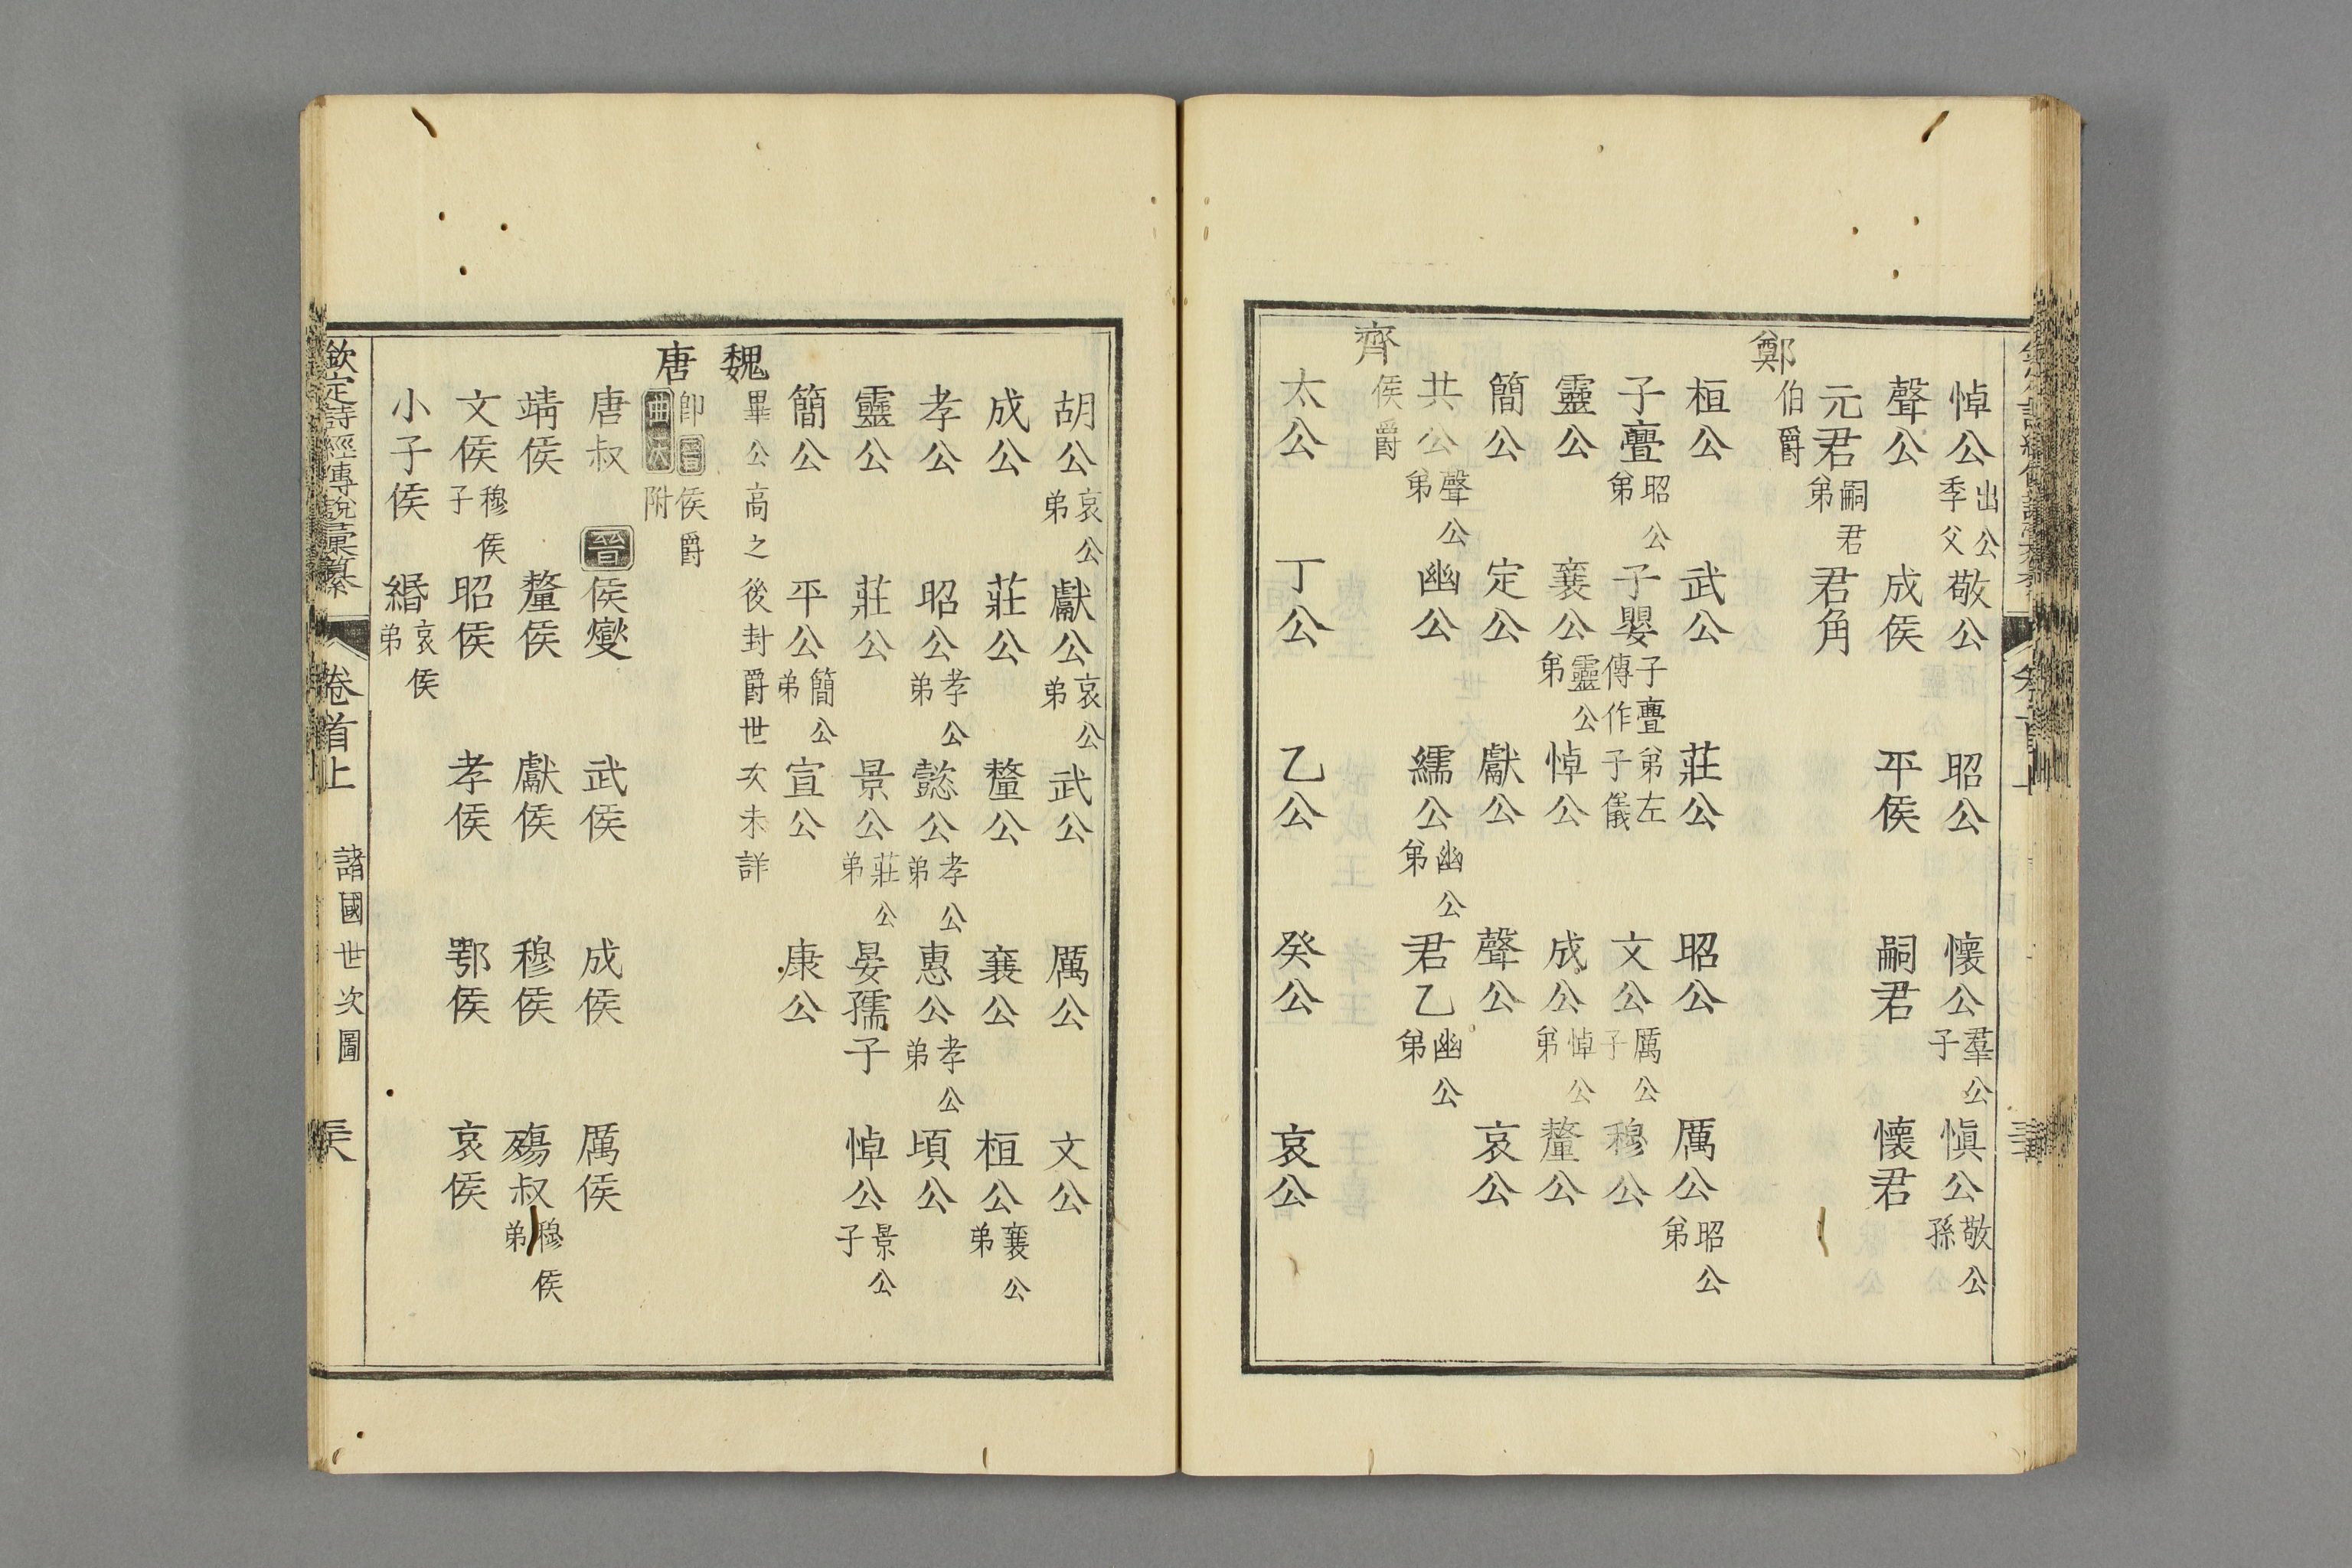 悼公出公季父 敬公 昭公 懷公羣公子 愼公敬公孫
聲公 成侯 平侯 嗣君 懷君
元君嗣君弟 君角
鄭伯爵
桓公 武公 莊公 昭公 厲公昭公弟
子亹昭公弟 子嬰子亹弟左傳作子儀 文公厲公子 穆公
靈公 襄公靈公弟 悼公 成公悼公弟 釐公
簡公 定公 獻公 聲公 哀公
共公聲公弟 幽公 繻公幽公弟 君乙幽公弟
齊侯爵
太公 丁公 乙公 癸公 哀公
胡公哀公弟 獻公哀公弟 武公 厲公 文公
成公 莊公 釐公 襄公 桓公襄公弟
孝公 昭公孝公弟 懿公孝公弟 惠公孝公弟 頃公
靈公 莊公 景公莊公弟 晏孺子 悼公景公子
簡公 平公簡公弟 宣公 康公
魏畢公高之後封爵世次未詳
唐卽晉侯爵曲沃附
唐叔 晉侯燮 武侯 成侯 厲侯
靖侯 釐侯 獻侯 穆侯 殤叔穆侯弟
文侯穆侯子 昭侯 孝侯 鄂侯 哀侯
小子侯 緡哀侯弟
欽定詩經傳說彙纂 卷首上 諸國世次圖